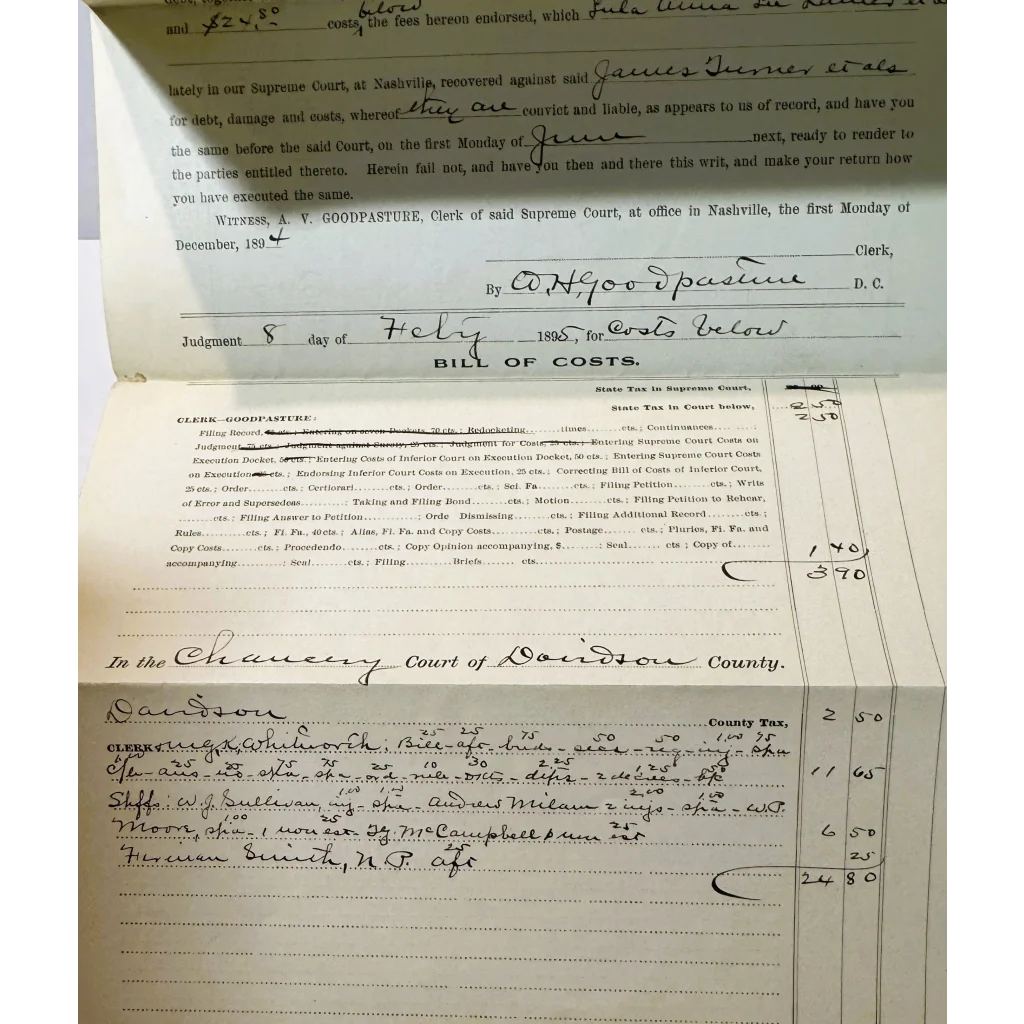 and $24.80 costs, below the fees hereon endorsed, which Lula Anna
lately in our Supreme Court, at Nashville, recovered against said James Turner et als
for debt, damage and costs, whereof they are convict and liable, as appears to us of record, and have you
the same before the said Court, on the first Monday of June next, ready to render to
the parties entitled thereto. Herein fail not, and have you then and there this writ, and make your return how
you have executed the same.
WITNESS, A. V. GOODPASTURE, Clerk of said Supreme Court, at office in Nashville, the first Monday of
December, 1894
Clerk,
By W. H. Goodpasture D. C.
Judgment 8 day of Feby 1895, for Costs below
BILL OF COSTS.
State Tax in Supreme Court,
State Tax in Court below, 2 50
CLERK—GOODPASTURE: 2 50
Filing Record, cts.; Entering on seven Dockets, 70 cts.; Redocketing........times........cts.; Continuances....:
Judgment, 75 cts.; Judgment against Surety, 25 cts.; Judgment for Costs, 25 cts.; Entering Supreme Court Costs on
Execution Docket, 50 cts.; Entering Costs of Inferior Court on Execution Docket, 50 cts.; Entering Supreme Court Costs
on Execution cts.; Endorsing Inferior Court Costs on Execution, 25 cts.; Correcting Bill of Costs of Inferior Court,
25 cts.; Order........cts.; Certiorari....cts.; Order........cts.; Sci. Fa........cts.; Filing Petition........cts.; Writs
of Error and Supersedeas..........: Taking and Filing Bond........cts.; Motion........cts.; Filing Petition to Rehear,
........cts.; Filing Answer to Petition............; Orde Dismissing........cts.; Filing Additional Record........cts.;
Rules........cts.; Fi. Fa., 40 cts.; Alias, Fi. Fa. and Copy Costs........cts.; Postage........cts.; Pluries, Fi. Fa. and
Copy Costs........cts.; Procedendo........cts.; Copy Opinion accompanying, $........; Seal........cts ; Copy of........ 1 40
accompanying..........; Seal........cts.; Filing..........Briefs........cts.
3 90
In the Chancery Court of Davidson County.
Davidson County Tax, 2 50
CLERK: Whitworth; Bill - afr - buds - seal - reg - inj - spa
11 65
Shffs: W. J. Sullivan, inj - spa - Andrew Milam 2 injs - spa - W.P.
Moore, spa - 1 non est - McCampbell 1 non est 6 50
Smith, N. P. afr 25
24 80